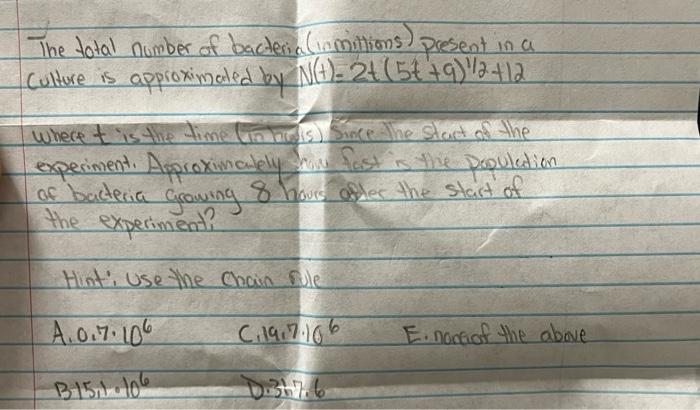 The total number of bacteria (in millions) present in a
culture is approximated by N(t)= 2t(5t+9)^1/2+12
where t is the time (in hours) since the start of the
experiment. Approximately how fast is the population
of bacteria growing 8 hours after the start of
the experiment?
Hint: Use the Chain rule
A. 0.7·10^6 C. 19.7·10^6 E. none of the above
B 15.1·10^6 D.